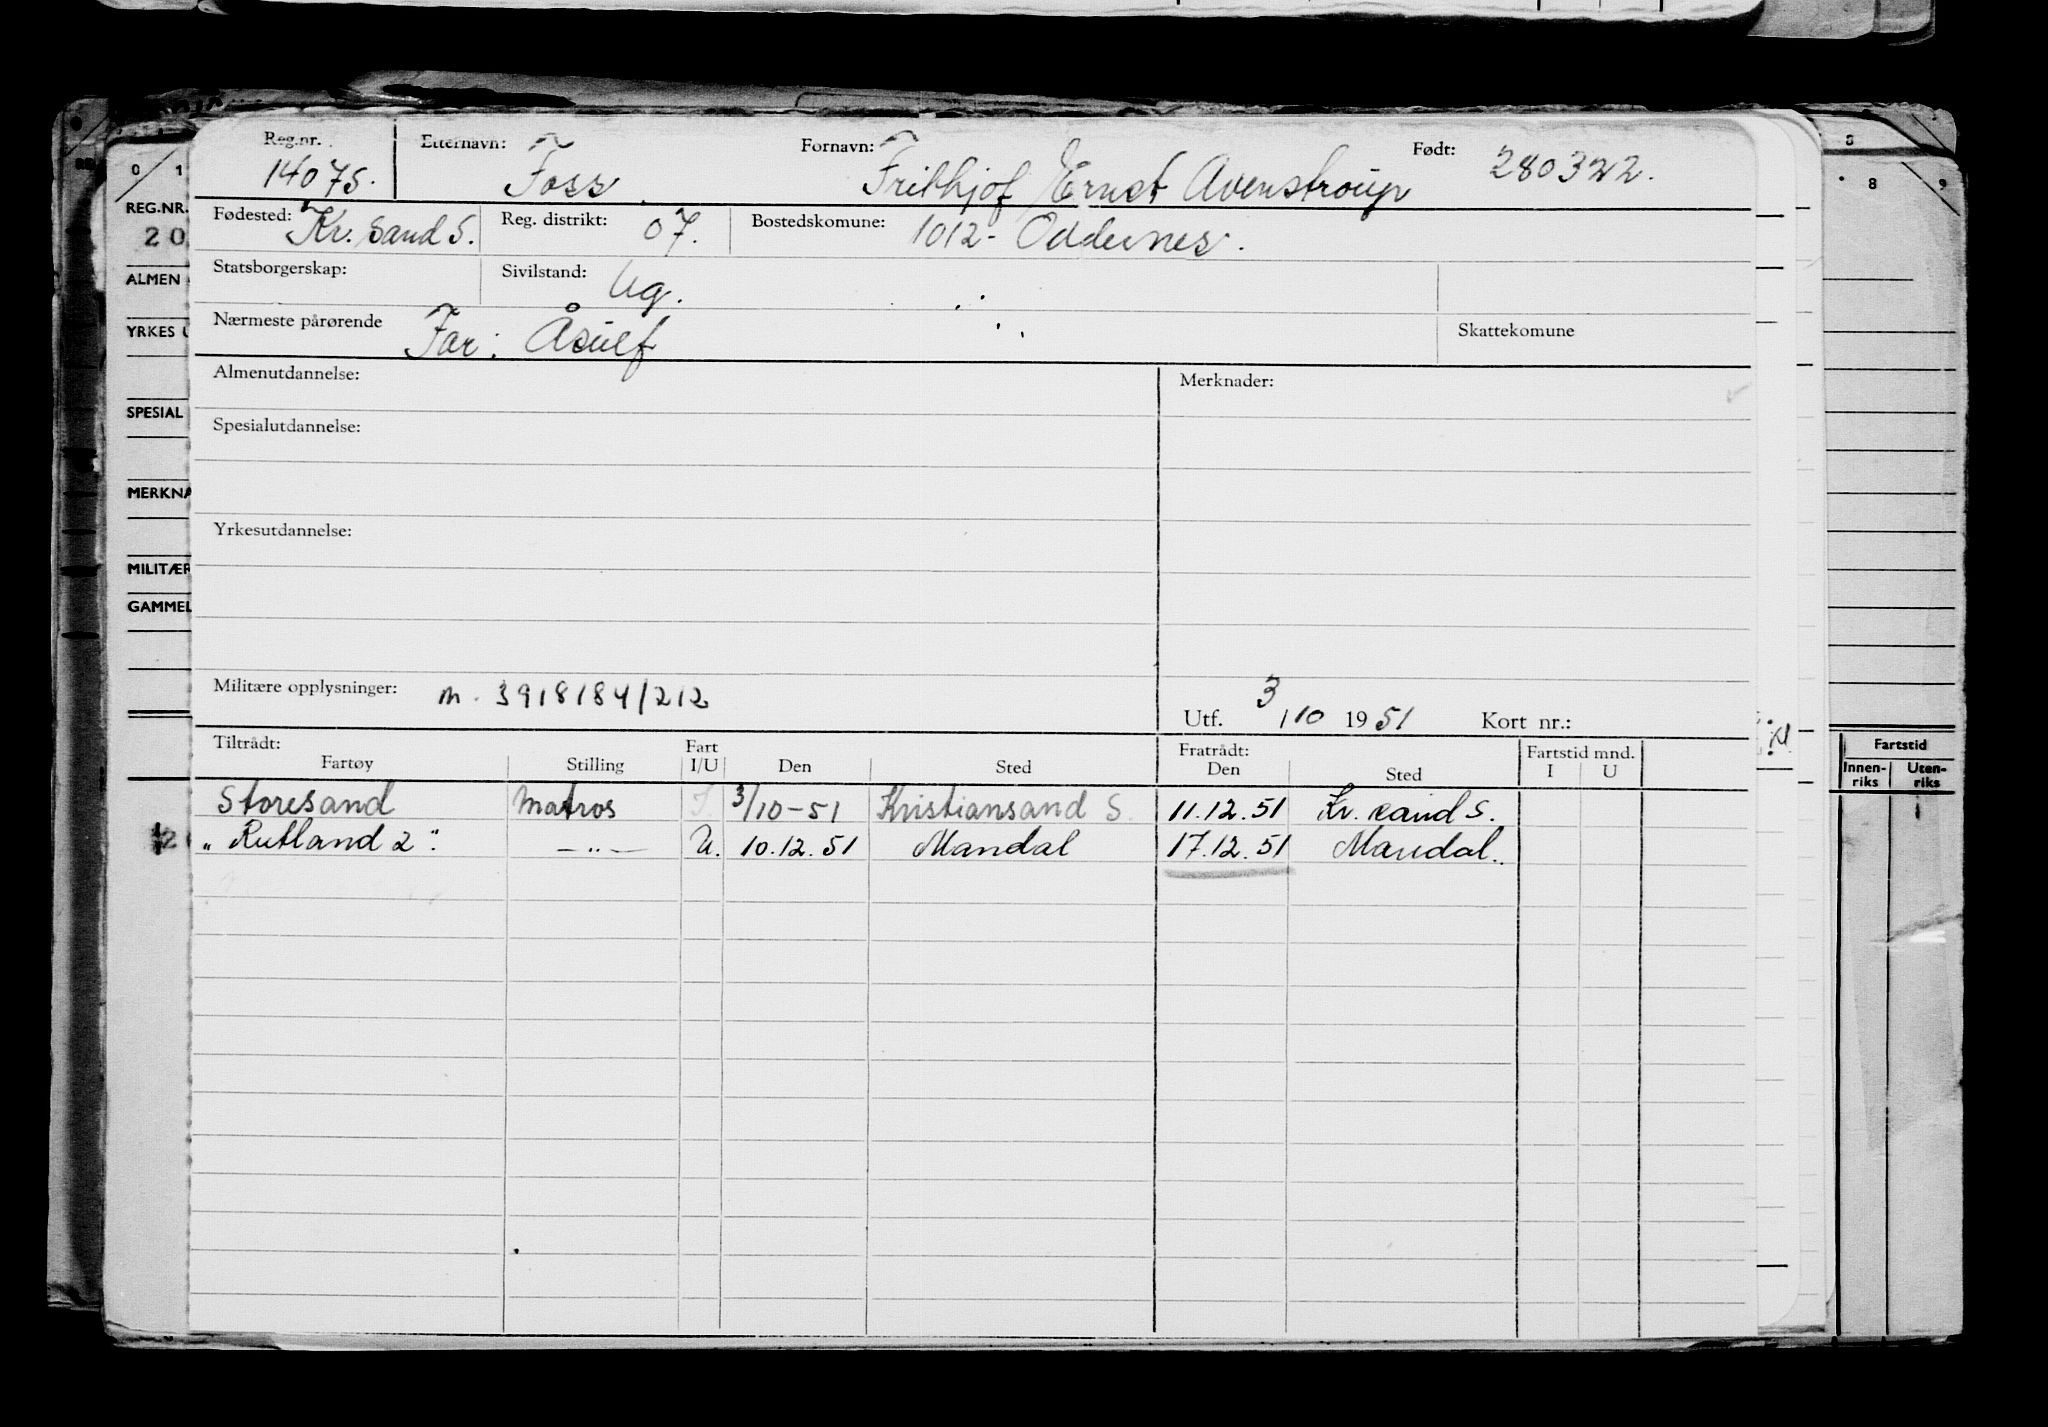 Reg.nr. Etternavn: Fornavn: Født:
14075. Foss Frithjof Ernst Avenstroup 280322.
Fødested: Kr.sand S. Reg. distrikt: 07. Bostedskomune: 1012- Oddernes.
Statsborgerskap: Sivilstand: Ug.
Nærmeste pårørende Far: Åsulf Skattekomune
Almenutdannelse: Merknader:
Spesialutdannelse:
Yrkesutdannelse:
Militære opplysninger: m. 3918184/212
Utf. 3/10 1951 Kort nr.:
Tiltrådt: Fratrådt: Fartstid mnd.
Fartøy Stilling Fart I/U Den Sted Den Sted I U
Storesand Matros I. 3/10-51 Kristiansand S. 11.12.51 Kr.sand S.
"Rutland 2". —"— U. 10.12.51 Mandal 17.12.51 Mandal.
0 1
REG.NR.
20
ALMEN
YRKES U
SPESIAL
MERKNA
MILITÆR
GAMMEL
8 9
Fartstid
Innen-riks Uten-riks
1